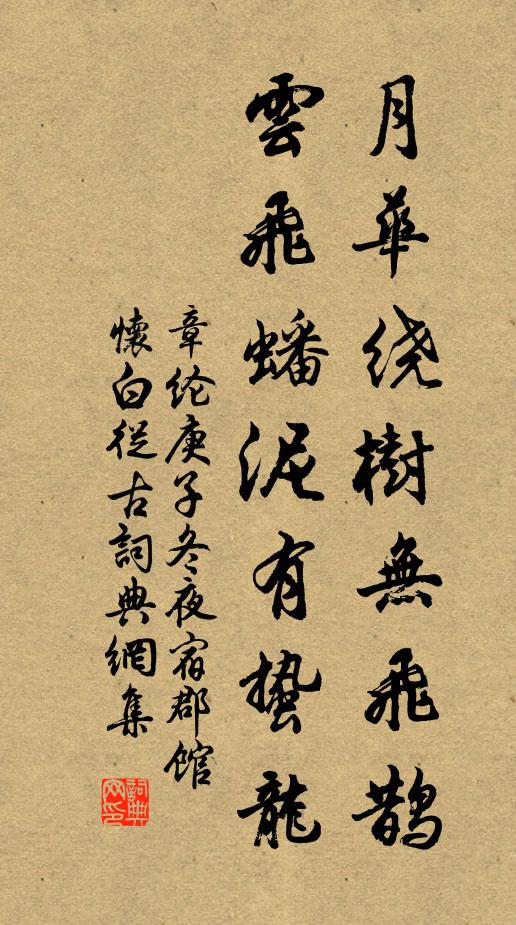 月華绕樹無飛鵲
雲飛蟠泥有蛰龍
章纶庚子冬夜宿郡馆
懷白從古詞典網集
詞典
网印